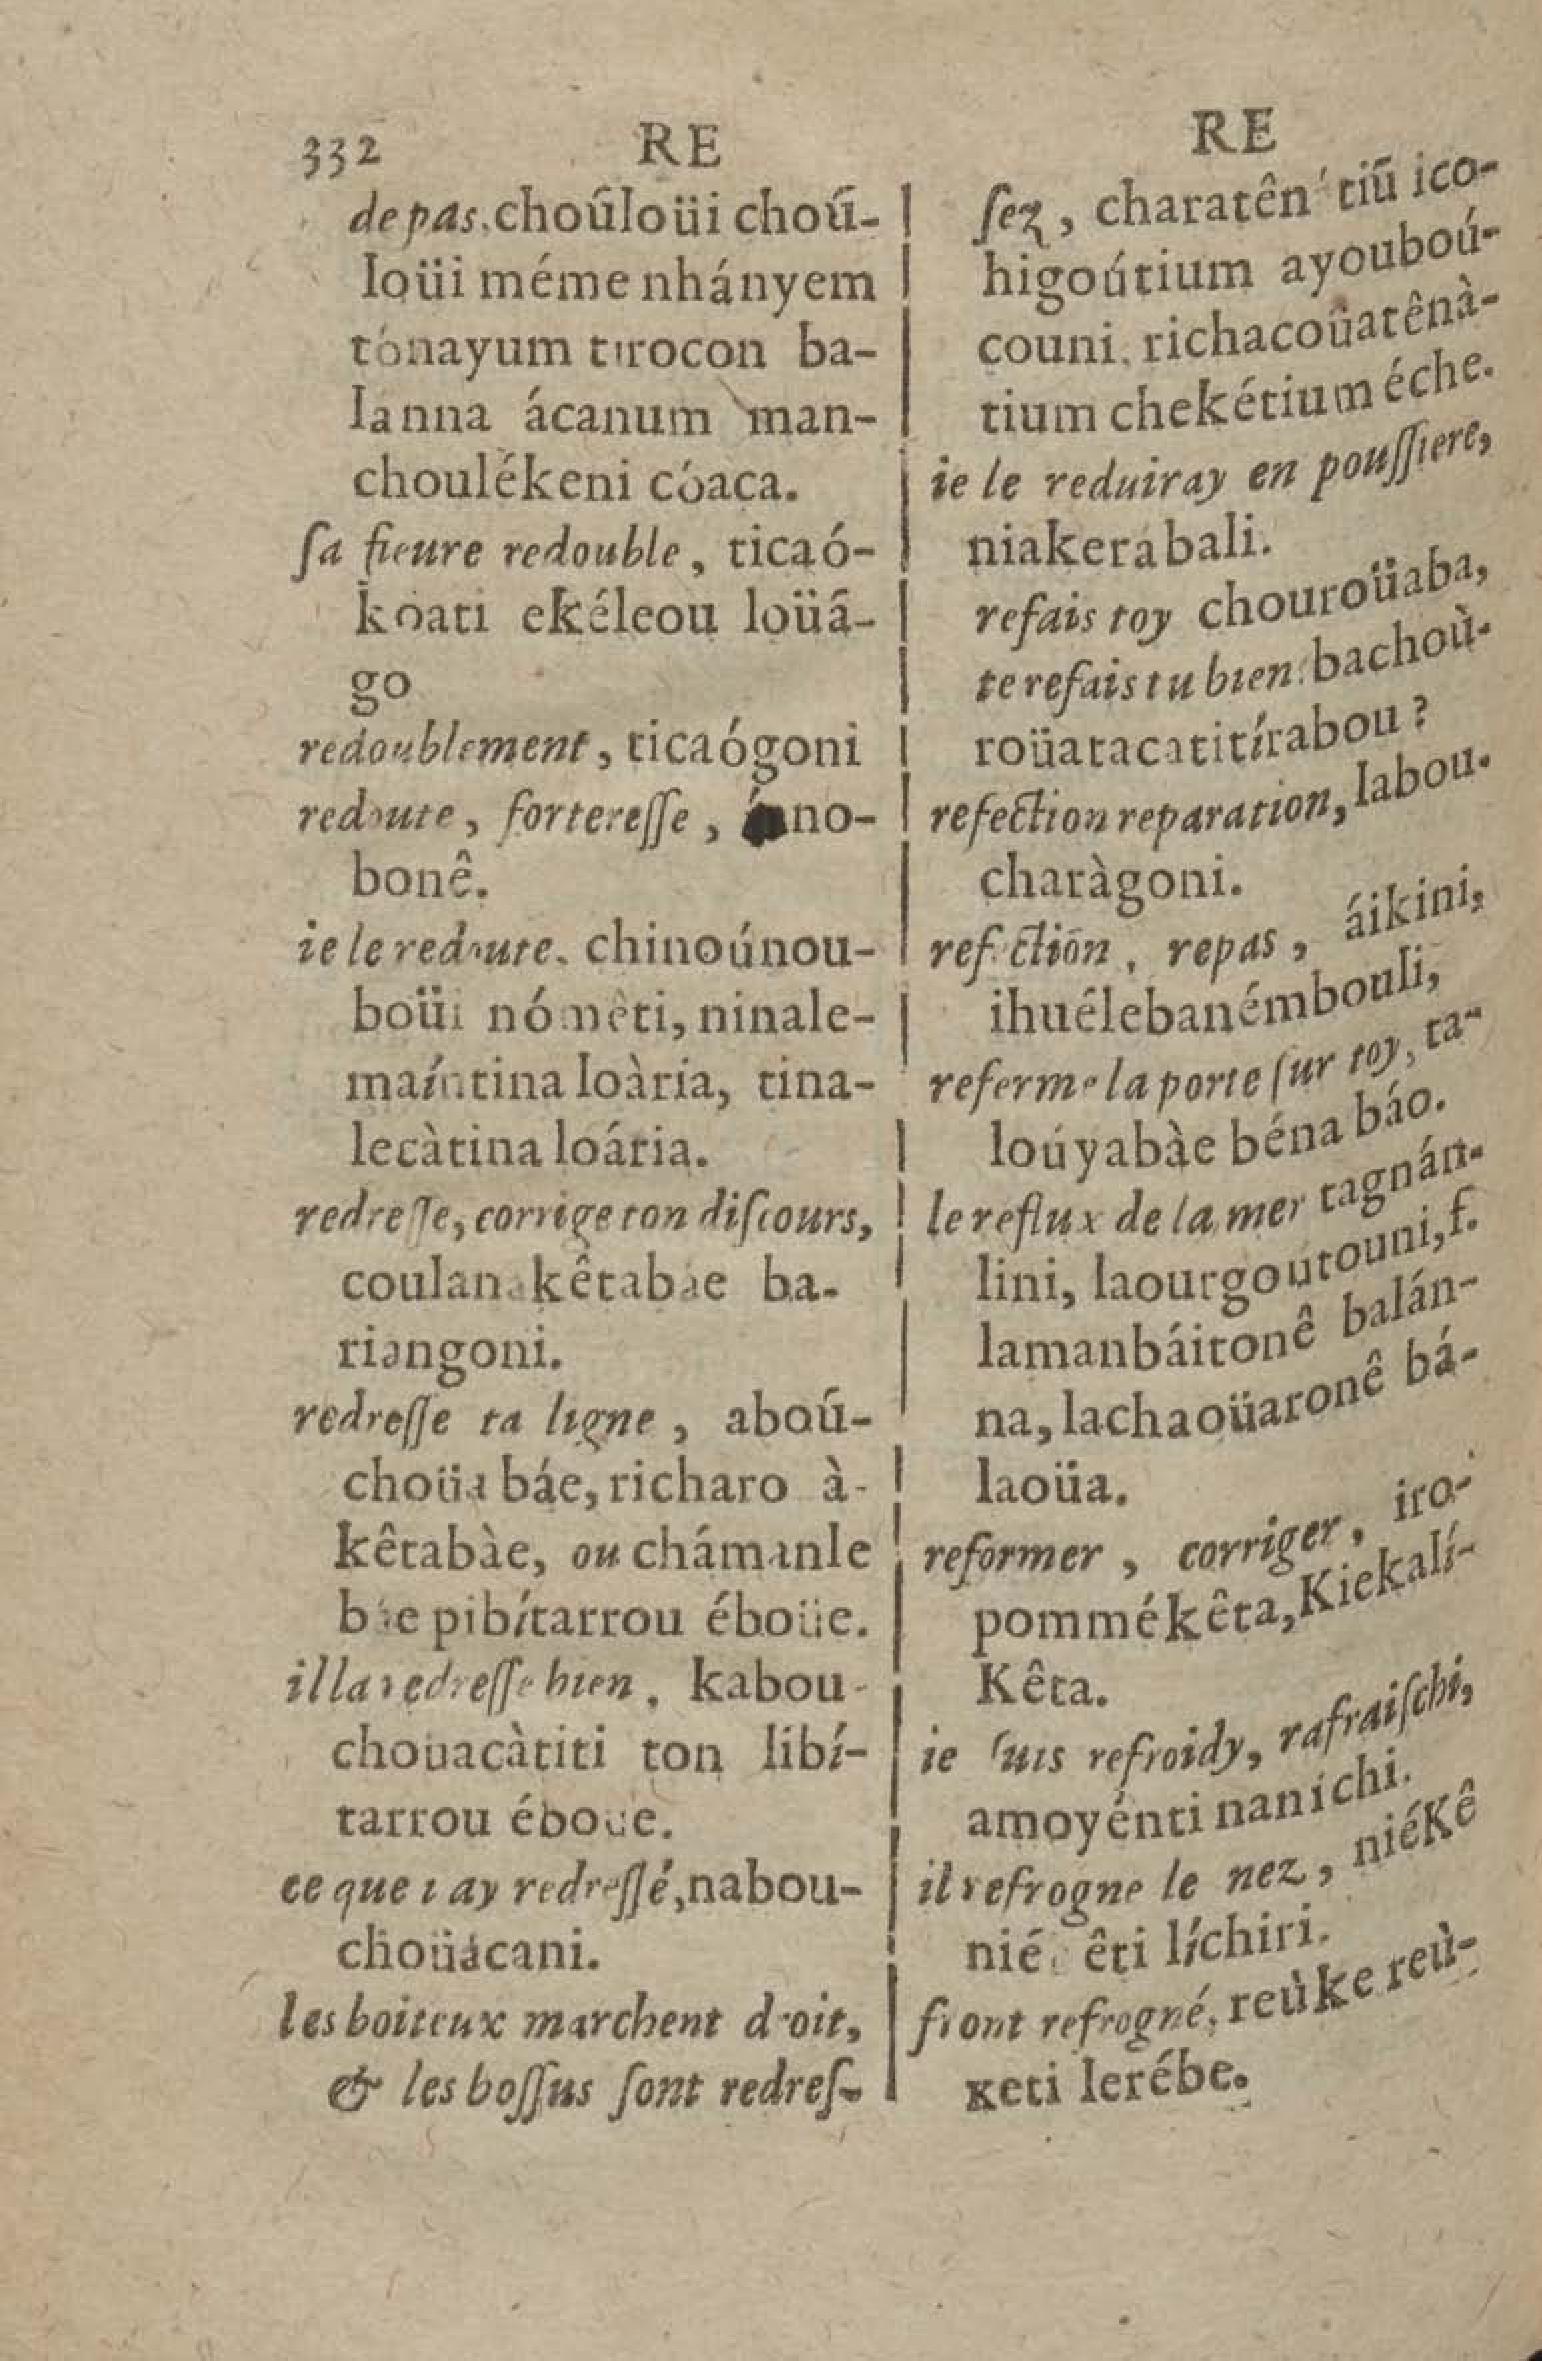 332 RE
de pas. choûloüi choú-
loüi méme nhányem
tónayum tirocon ba-
lanna ácanum man-
choulékeni cóaca.
ſa fieure redouble, ticaó-
koati ekéleou loüá-
go
redoublement, ticaógoni
redoute, fortereſſe, no-
bonê.
ie le redoute. chinoúnou-
boüi nómêti, ninale-
maíntina loària, tina-
lecàtina loária.
redreſſe, corrige ton diſcours,
kêtabae ba-
riangoni.
redreſſe ta ligne, aboú-
choüa báe, richaro à-
kêtabàe, ou chámanle
bae pibítarrou éboüe.
il la redreſſe bien, kabou-
chouacàtiti ton libí-
tarrou éboue.
ce que i ay redreſſé, nabou-
choüácani.
les boiteux marchent droit,
& les boſſus ſont redreſ-
RE
ſez, charatên tiú ico-
higoútium ayouboú-
couni. richacoüatênà-
tium chekétium éche.
ie le reduiray en pouſſiere,
niakerábali.
refais toy chouroüaba,
te refais tu bien: bachoù-
roüatacatitírabou?
refection reparation, labou-
charàgoni.
refection, repas, áikini,
ihuélebanémbouli,
referme la porte ſur toy, ta-
loúyabàe béna báo.
le reflux de la mer tagnán-
lini, laourgoútouni, f.
lamanbáitonê balán-
na, lachaoüaronê bá-
laoüa.
reformer, corriger, iro-
pommékêta, Kiekalí-
Kêta.
ie ſuis refroidy, rafraiſchi,
amoyénti nanichi.
il refrogne le nez, niéKê
nié êti líchiri.
front refrogné, reùke reù-
keti lerébe.